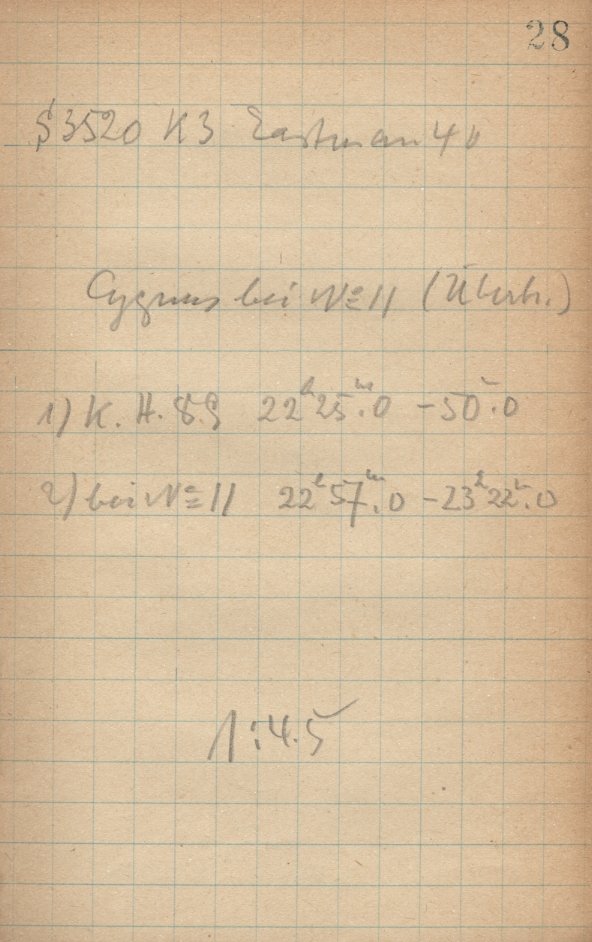 28
S3520 K3 Eastman 40
Cygnus bei No 11 (Überh.)
1) K. H. 89 22h25m.0 - 50m.0
2) bei No 11 22h57m.0 - 23h22m.0
1:4.5